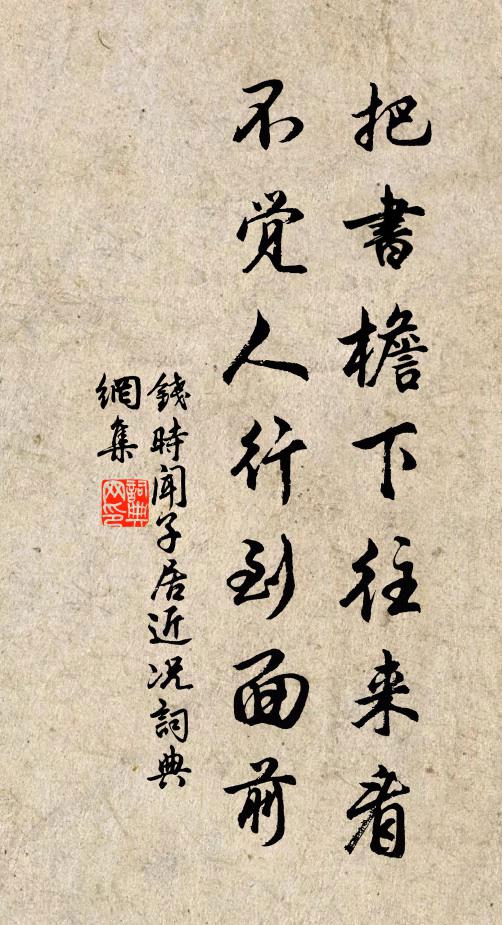 把書檐下往来看
不覚人行到面前
錢時聞子居近况詞典
網集
詞典
网印